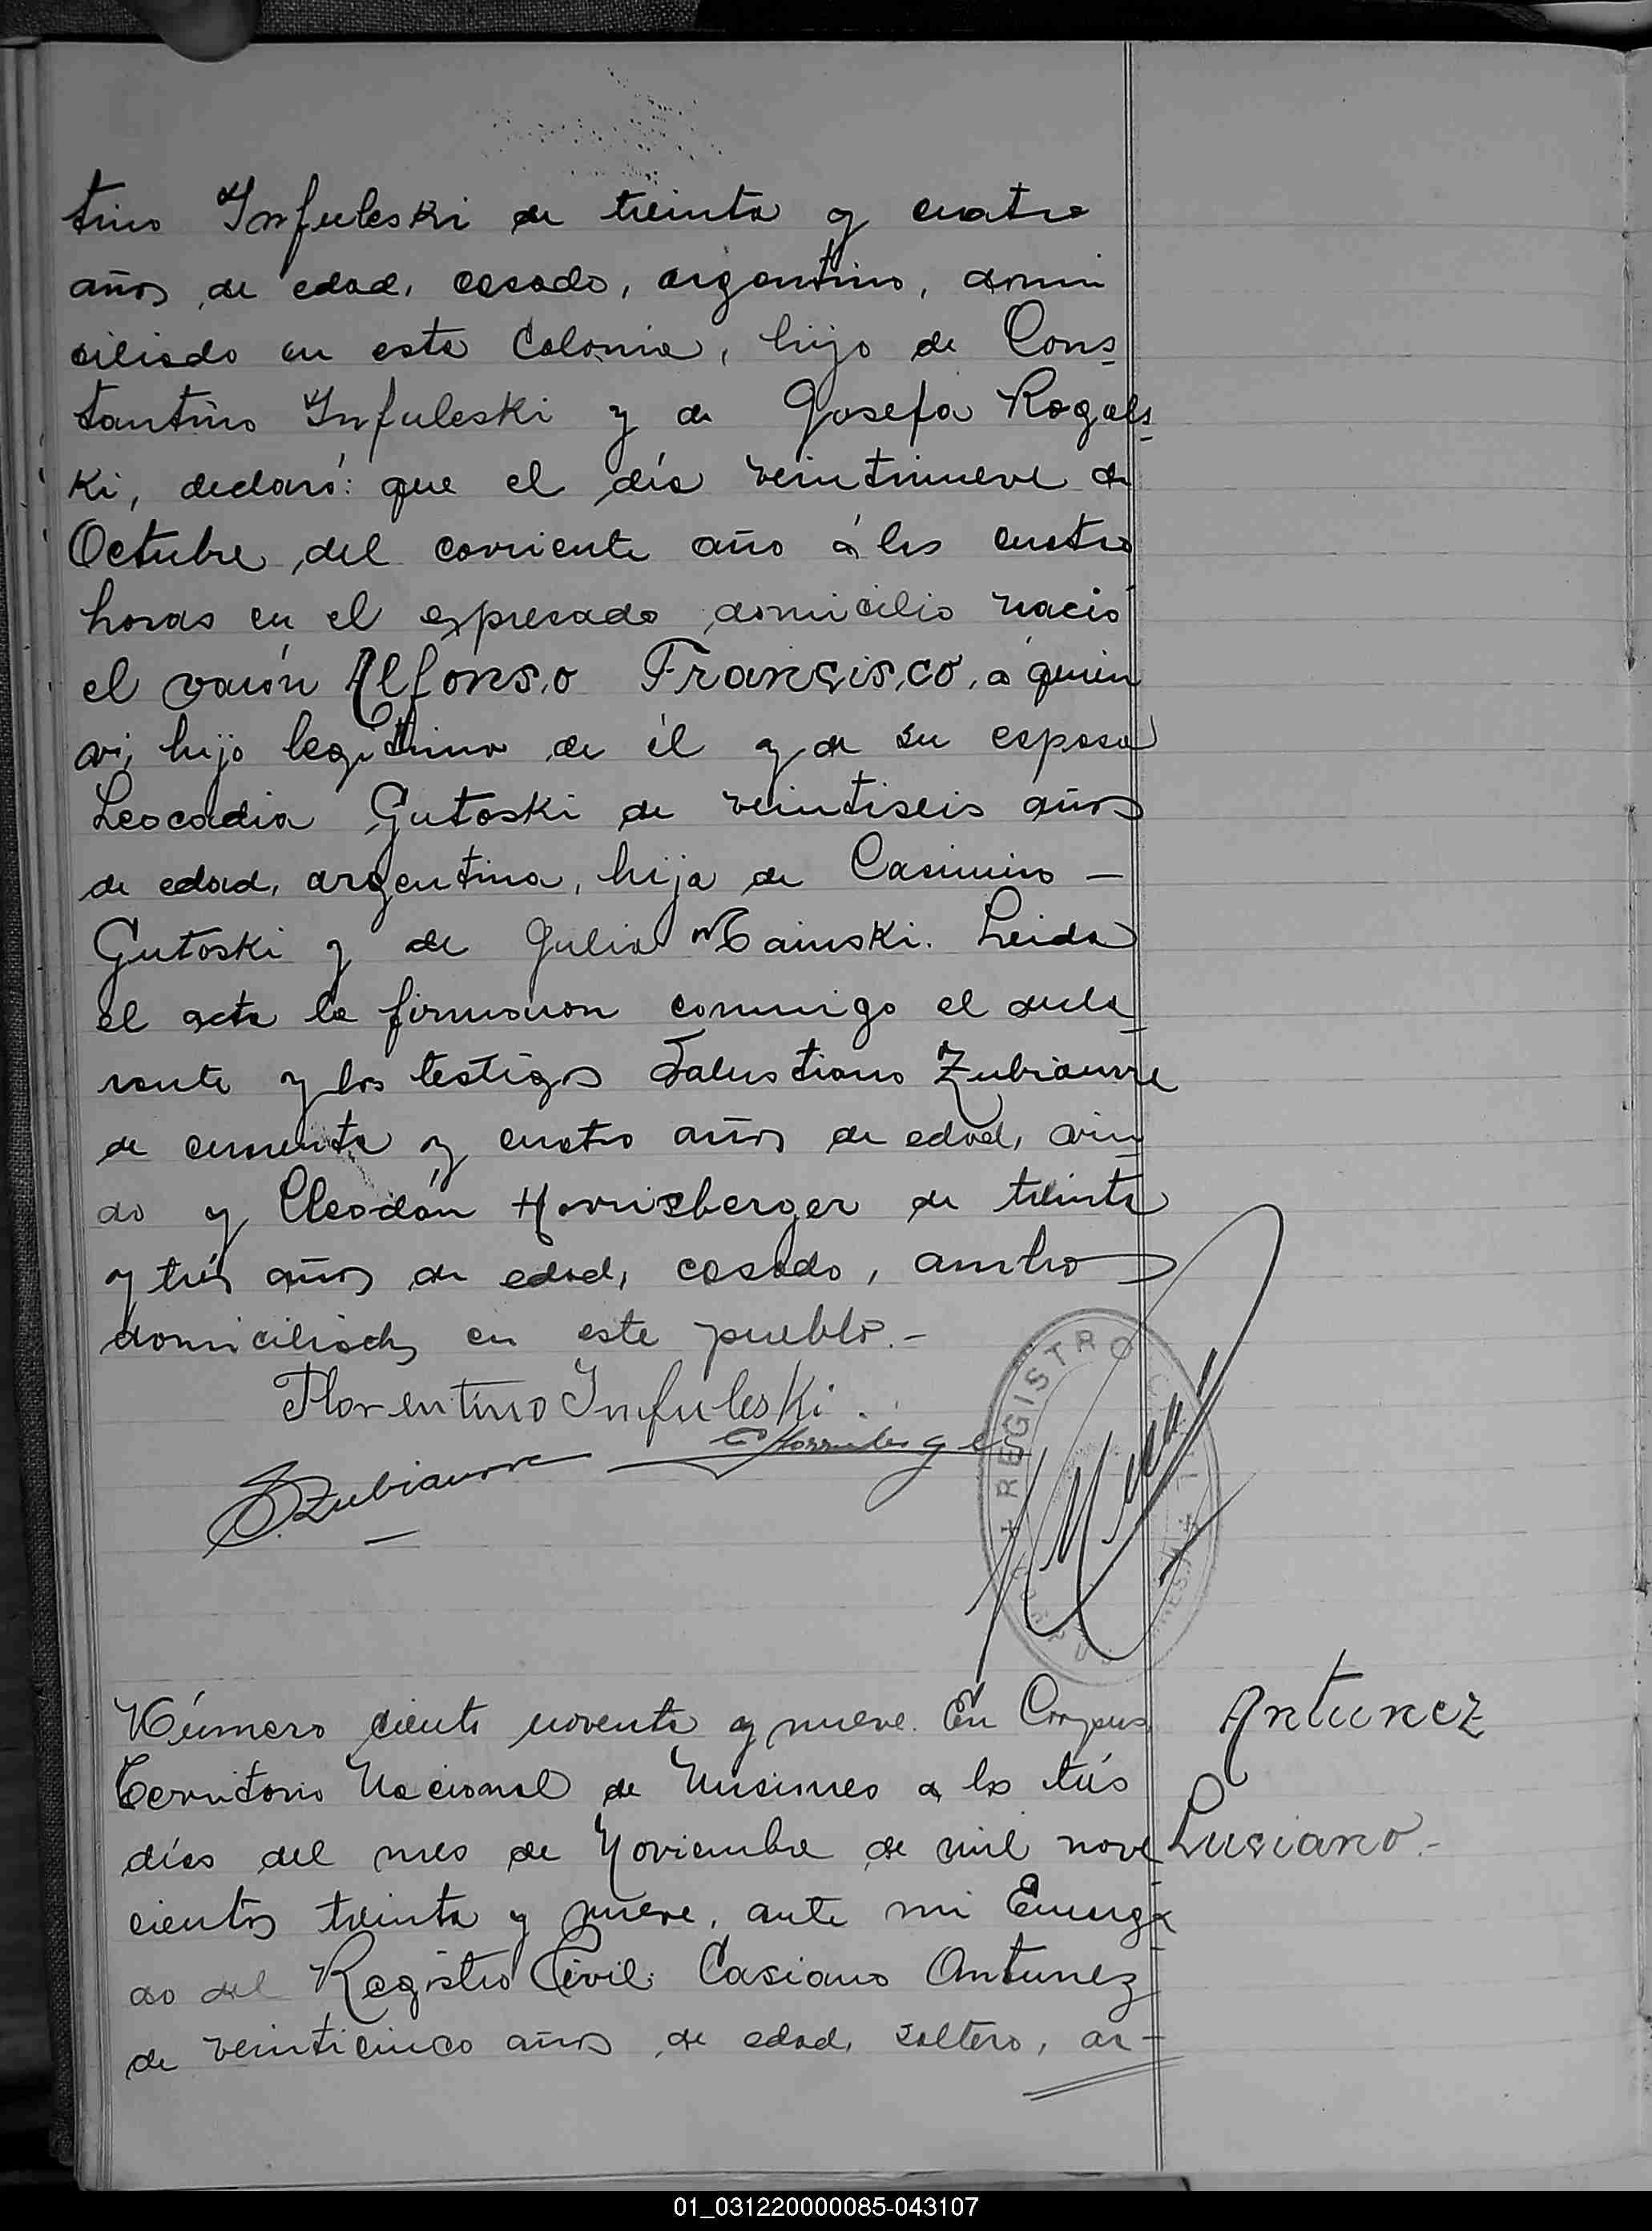 tino Infuleski de treinta y cuatro
años de edad, casado, argentino, domi
ciliado en esta Colonia, hijo de Cons-
tantino Infuleski y de Josefa Rogals-
ki, declaró: que el día veintinueve de
Octubre del corriente año á las cuatro
horas en el expresado domicilio nació
el varón Alfonso Francisco, a quien
vi, hijo legitimo de él y de su esposa
Leocadia Gutoski de veintiseis años
de edad, argentina, hija de Casimiro -
Gutoski y de Julia Mainski. Leida
el acta la firmaron conmigo el decla-
rante y los testigos Salustiano Zubiaurre
de cuarenta y cuatro años de edad, viu-
do y Cleodán Horrisberger de treinta
y trés años de edad, casado, ambos
domiciliados en este pueblo.-
Florentino Infuleski
S. Zubiaurre
REGISTRO
Número ciento noventa y nueve. En Corpus
Territorio Nacional de Misiones a los trés
días del mes de Noviembre de mil nove-
cientos treinta y nueve, ante mi Encarga-
do del Registro Civil: Casiano Antunez
de veinticinco años de edad, soltero, ar-
Antunez
Luciano.-
01_031220000085-043107